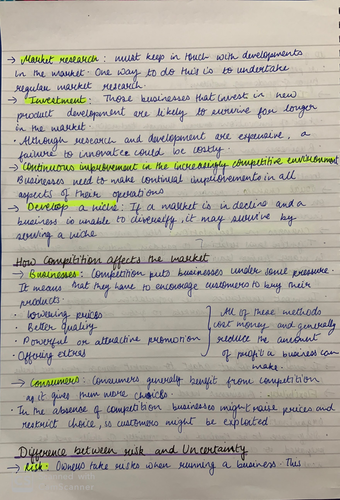 → Market research : must keep in touch with developments
in the market. One way to do this is to undertake
regular market research.
→ Investment : Those businesses that invest in new
product development are likely to survive for longer
in the market.
· Although research and development are expensive, a
failure to innovate could be costly.
→ Continuous improvement in the increasingly competitive environment
Businesses need to make continual improvements in all
aspects of their operations
→ Develop a niche : If a market is in decline and a
business is unable to diversify, it may survive by
serving a niche
How Competition affects the market
→ Businesses : Competition puts businesses under some pressure.
It means that they have to encourage customers to buy their
products.
· lowering prices
· Better quality
· Powerful or attractive promotion
· Offering extras
All of these methods
cost money and generally
reduce the amount
of profit a business can
make.
→ Consumers : Consumers generally benefit from competition
as it gives them more choices.
· In the absence of competition businesses might raise prices and
restrict choice, so customers might be exploited
Difference between risk and Uncertainty
→ Risk : Owners take risks when running a business. This